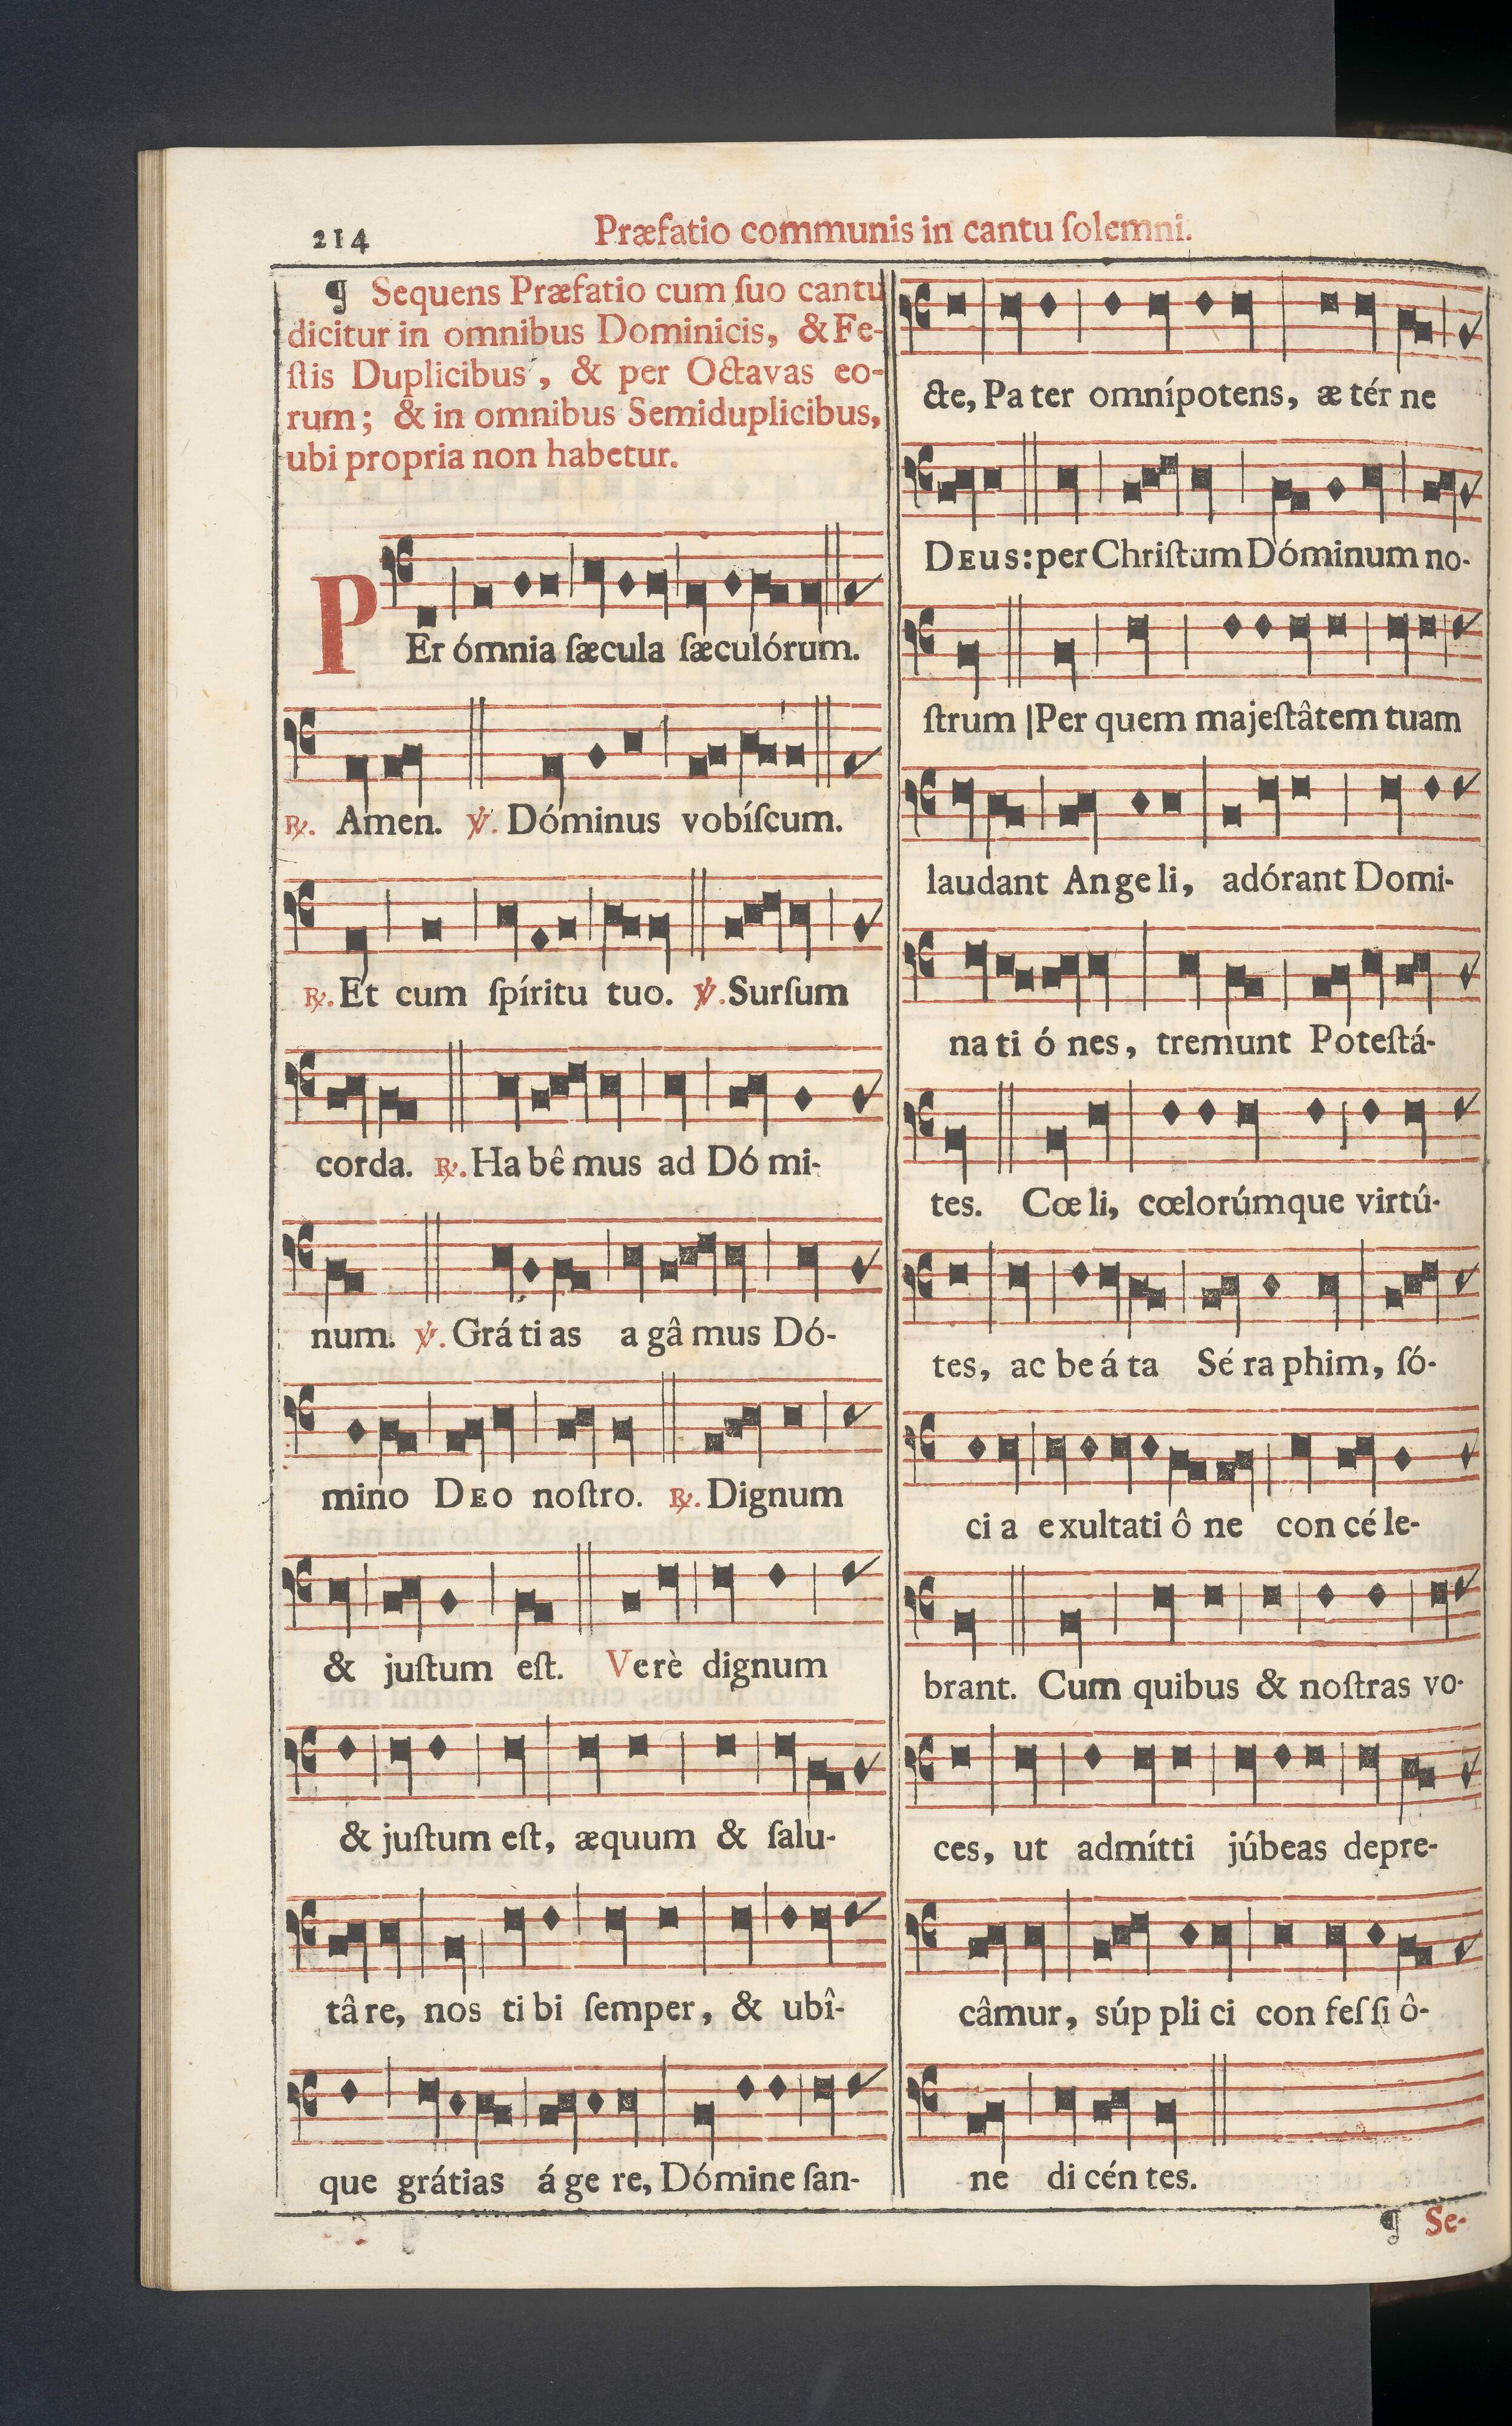 214
Præfatio communis in cantu ſolemni.
¶ Sequens Præfatio cum ſuo cantu
dicitur in omnibus Dominicis, & Fe-
ſtis Duplicibus, & per Octavas eo-
rum; & in omnibus Semiduplicibus,
ubi propria non habetur.
PEr ómnia ſæcula ſæculórum.
℟. Amen. ℣. Dóminus vobíſcum.
℟. Et cum ſpíritu tuo. ℣. Surſum
corda. ℟. Ha bê mus ad Dó mi-
num. ℣. Grá ti as a gâ mus Dó-
mino DEO noſtro. ℟. Dignum
& juſtum eſt. Verè dignum
& juſtum eſt, æquum & ſalu-
tâ re, nos ti bi ſemper, & ubî-
que grátias á ge re, Dómine ſan-
cte, Pa ter omnípotens, æ tér ne
DEUS: per Chriſtum Dóminum no-
ſtrum | Per quem majeſtâtem tuam
laudant An ge li, adórant Domi-
na ti ó nes, tremunt Poteſtá-
tes. Cœ li, cœlorúmque virtú-
tes, ac be á ta Sé ra phim, ſó-
ci a exultati ô ne con cé le-
brant. Cum quibus & noſtras vo-
ces, ut admítti júbeas depre-
câmur, súp pli ci con feſ ſi ô-
ne di cén tes.
¶ Se-